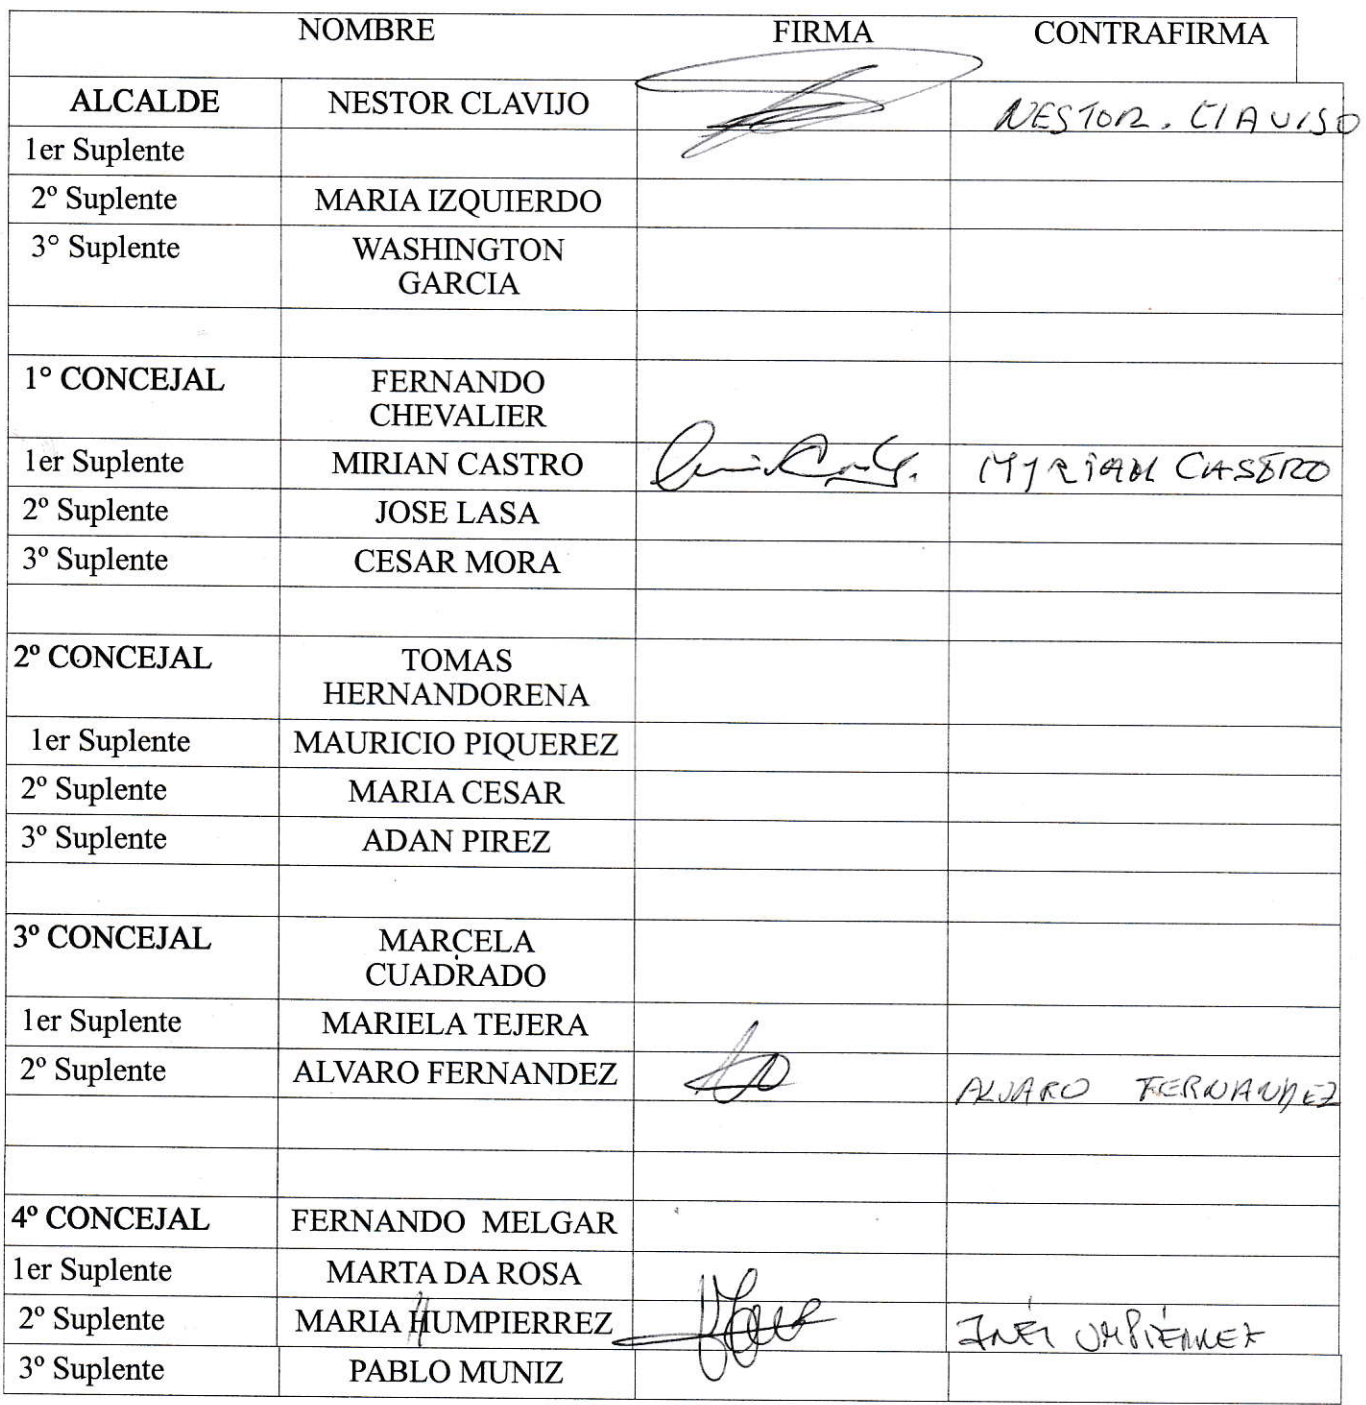 NOMBRE FIRMA CONTRAFIRMA
ALCALDE NESTOR CLAVIJO NESTOR. CLAVIJO
1er Suplente
2º Suplente MARIA IZQUIERDO
3° Suplente WASHINGTON
GARCIA
1° CONCEJAL FERNANDO
CHEVALIER
1er Suplente MIRIAN CASTRO MYRIAM CASTRO
2º Suplente JOSE LASA
3º Suplente CESAR MORA
2º CONCEJAL TOMAS
HERNANDORENA
1er Suplente MAURICIO PIQUEREZ
2º Suplente MARIA CESAR
3º Suplente ADAN PIREZ
3º CONCEJAL MARCELA
CUADRADO
1er Suplente MARIELA TEJERA
2º Suplente ALVARO FERNANDEZ ALVARO FERNANDEZ
4º CONCEJAL FERNANDO MELGAR
1er Suplente MARTA DA ROSA
2º Suplente MARIA HUMPIERREZ INÉS UMPIÉRREZ
3º Suplente PABLO MUNIZ